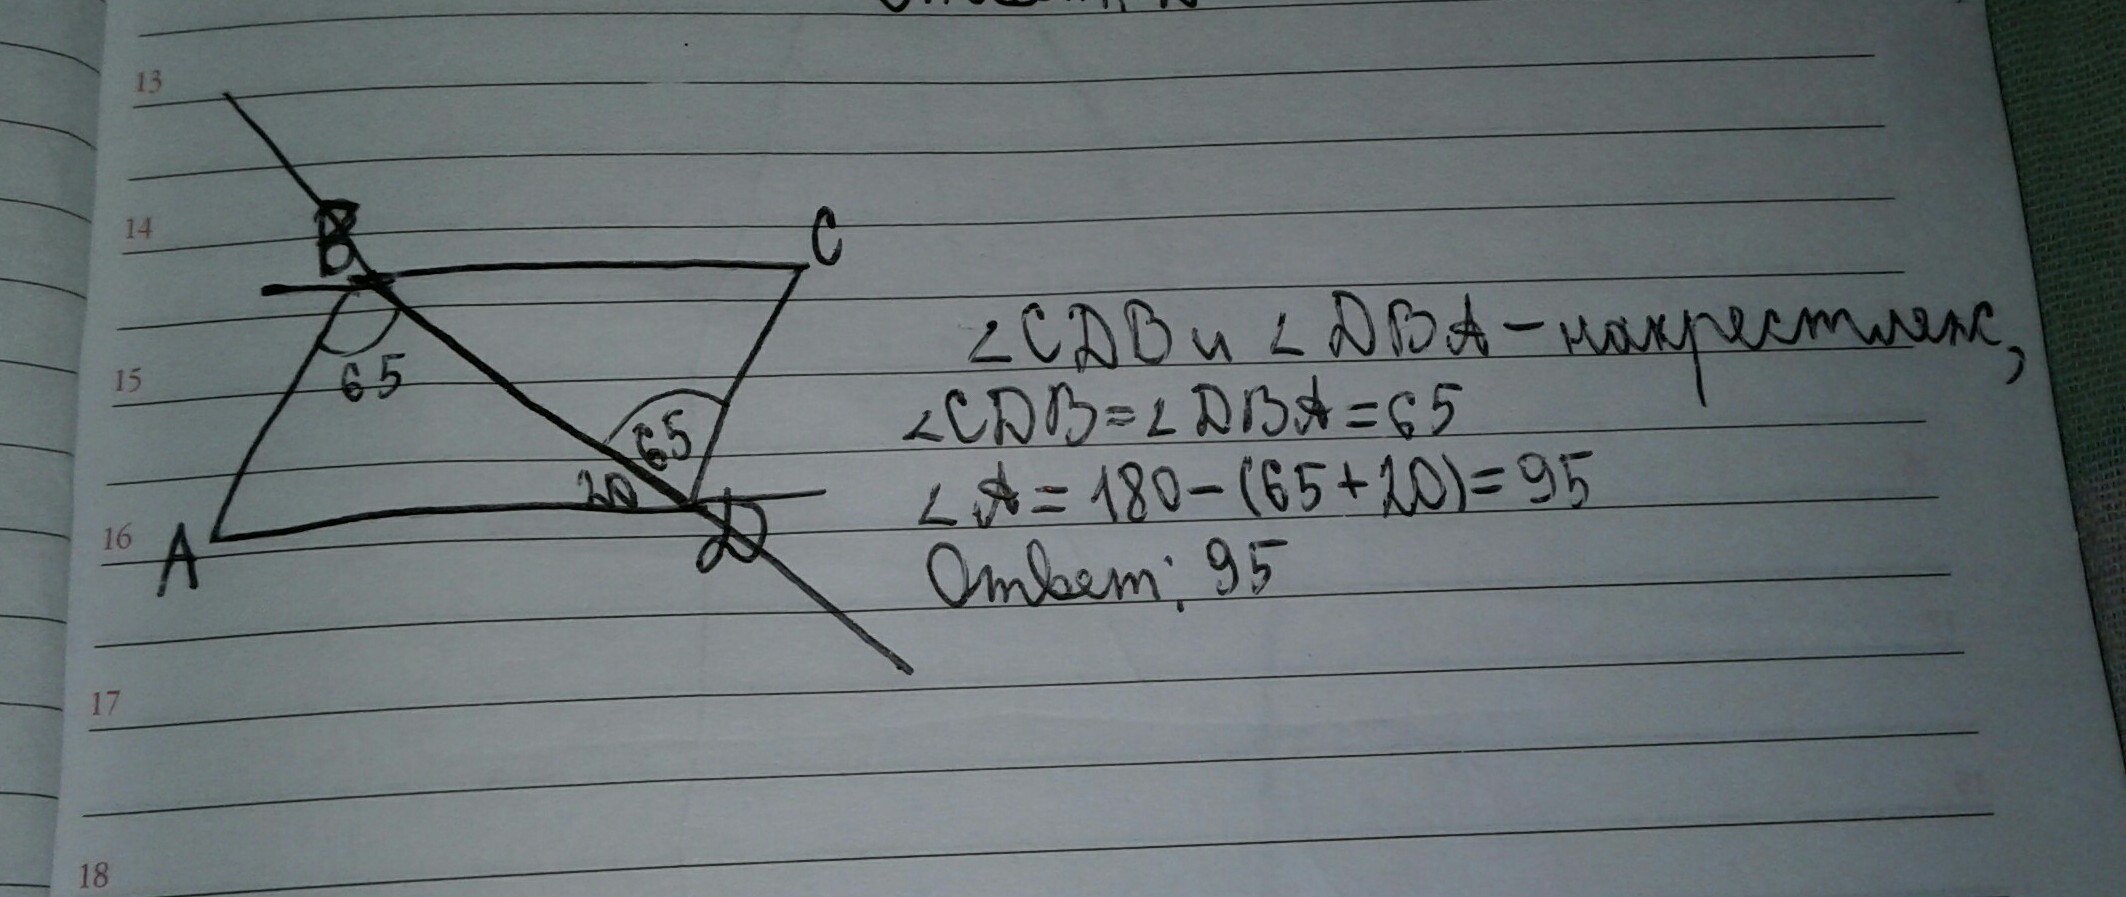 13
14
B
C
∠CDB и ∠DBA - накрестлеж,
15
65
65
∠CDB = ∠DBA = 65
20
∠A = 180 - (65 + 20) = 95
16
A
D
Ответ: 95
17
18